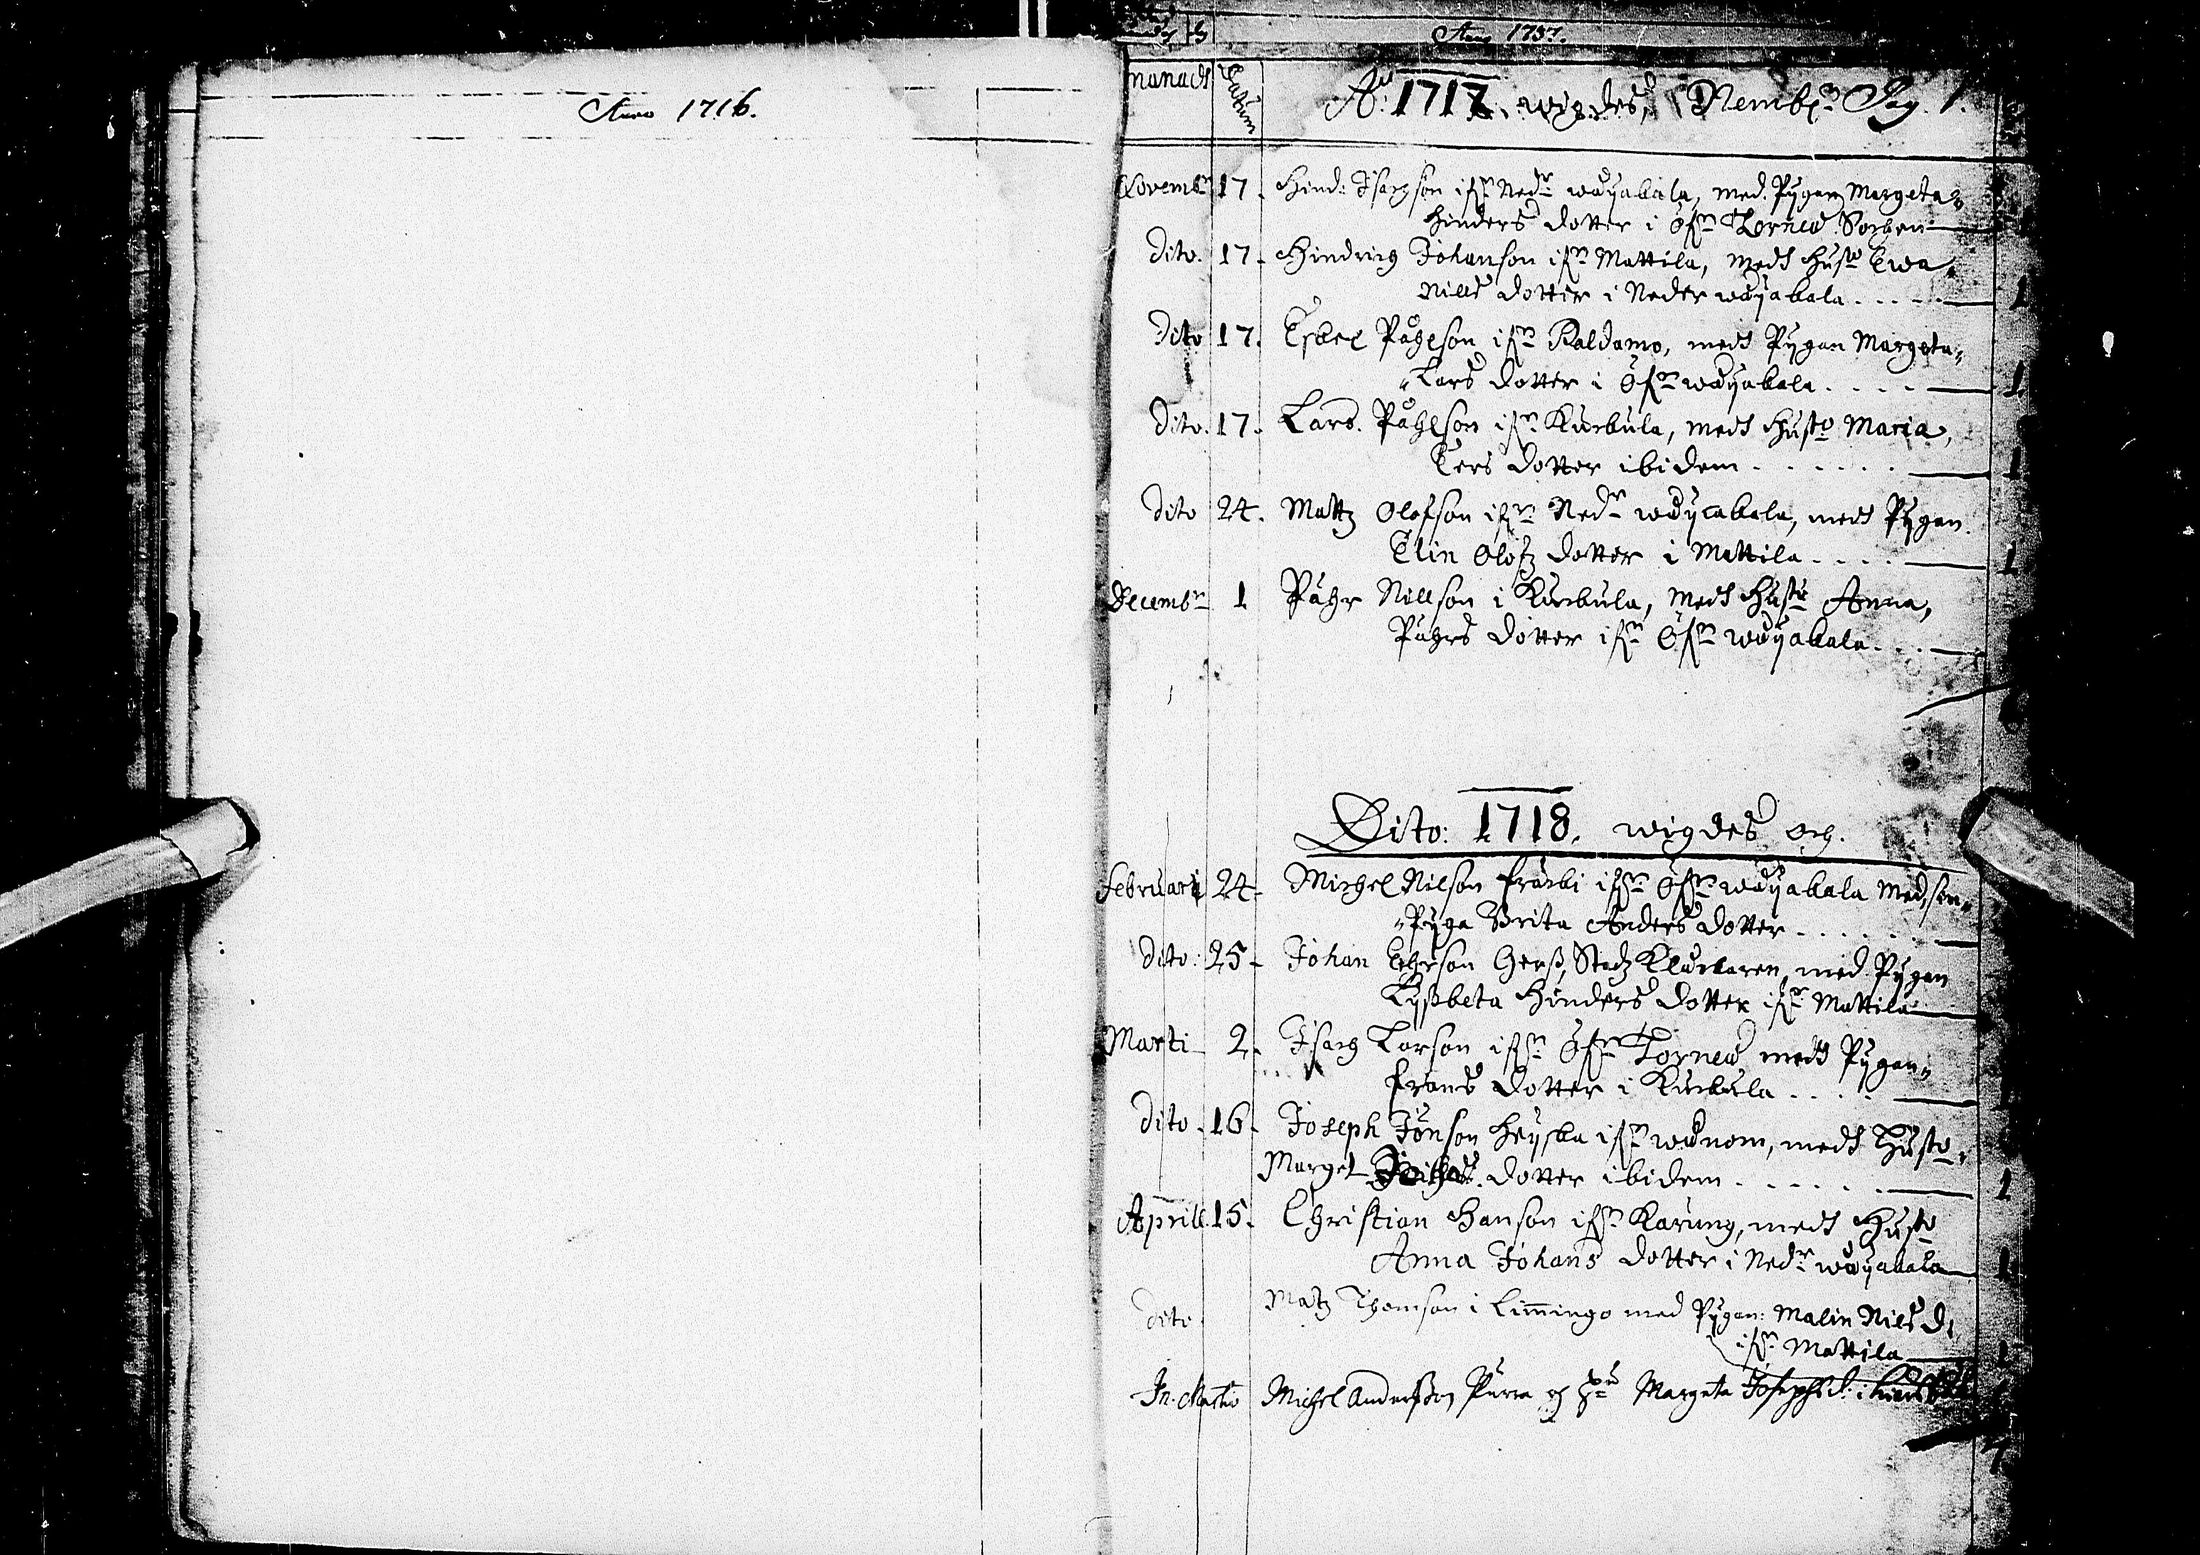 Anno 1716.
Anno 1737.
månads Datum Ao: 1717. wigdes, Pag. 1.
Novembr 17. Hind: Isacson ifrn Nedr wåyakala, med Pygan Margeta
Hinders dotter i Öfrn Torneå
Dito. 17. Hindrich Johanson ifrn Mattila, medh Husto Ewa
Nills dotter i Neder wåyakala 1
Dito 17. Eskel Påhlson ifrn Raldamo, medh Pygan Margeta
Lars dotter i Öfrn wåyakala 1
Dito. 17. Lars Påhlson ifrn Kuckula, medh Husto Maria,
Ers dotter ibidem 1
Dito 24. Mattz Olofson ifrn Nedr wåyakala, medh Pygan
Elin Olofz dotter i Mattila 1
Decembr 1 Påhr Nillson i Kuckula, medh Husto Anna,
Påhrs dotter ifrn Öfrn wåyakala
Dito: 1718. wigdes och.
Februari 24. Michel Nilson ifrn Öfrn wåyakala Med, sin
Pyga Brita Anders dotter
Dito: 25. Johan Stadz Klockaren, med Pygan
Lyßbeta Hinders dotter ifrn Mattila
Marti 2. Isac Larson ifrn Öfrn Torneå medh Pygan
Frans dotter i Kuckula
Dito. 16. Joseph Jönson ifrn wånom, medh Husto
Marget dotter ibidem 1
Aprill. 15. Christian Hanson ifrn Karung, medh Husto
Anna Johans dotter i Nedr wåyakala 1
dito Matz Thomson i Limingo med Pygan: Malin Nils D.
ifrn Mattila 1
Michel Anderßon Purra och Margeta Josephsd: i